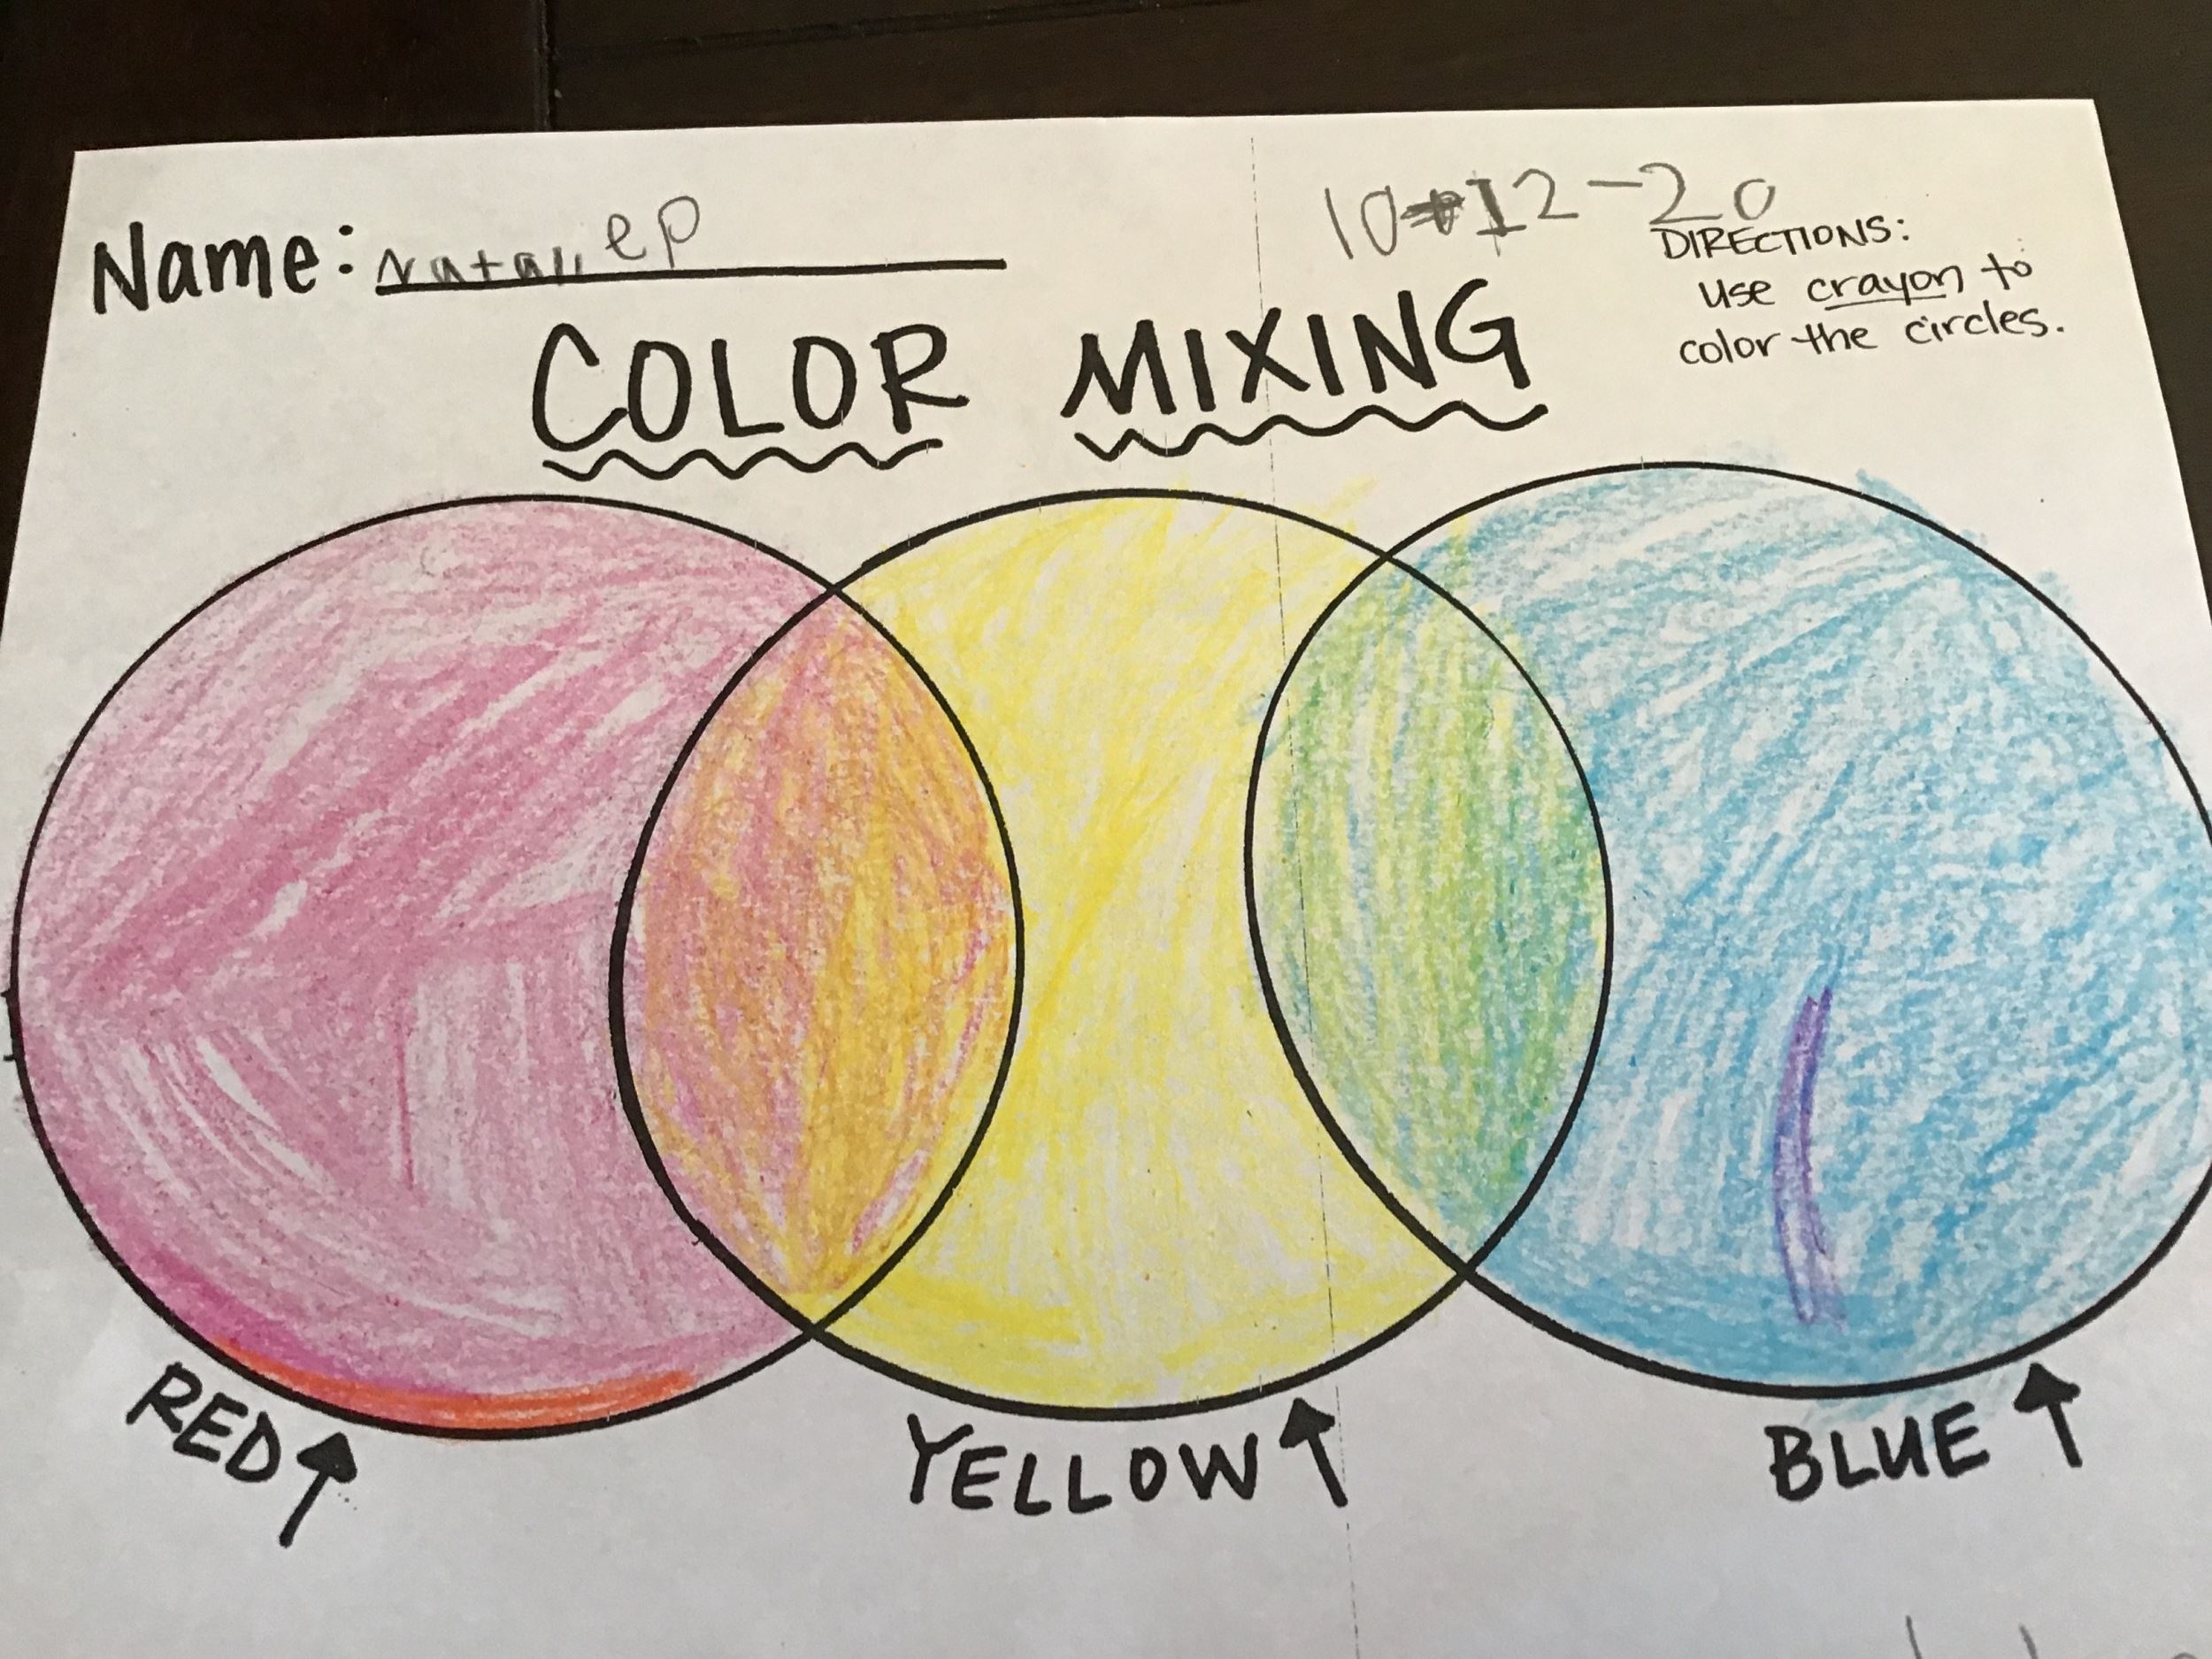 Name: Natalie P
10-12-20
DIRECTIONS:
use crayon to
color the circles.
COLOR MIXING
RED
YELLOW
BLUE